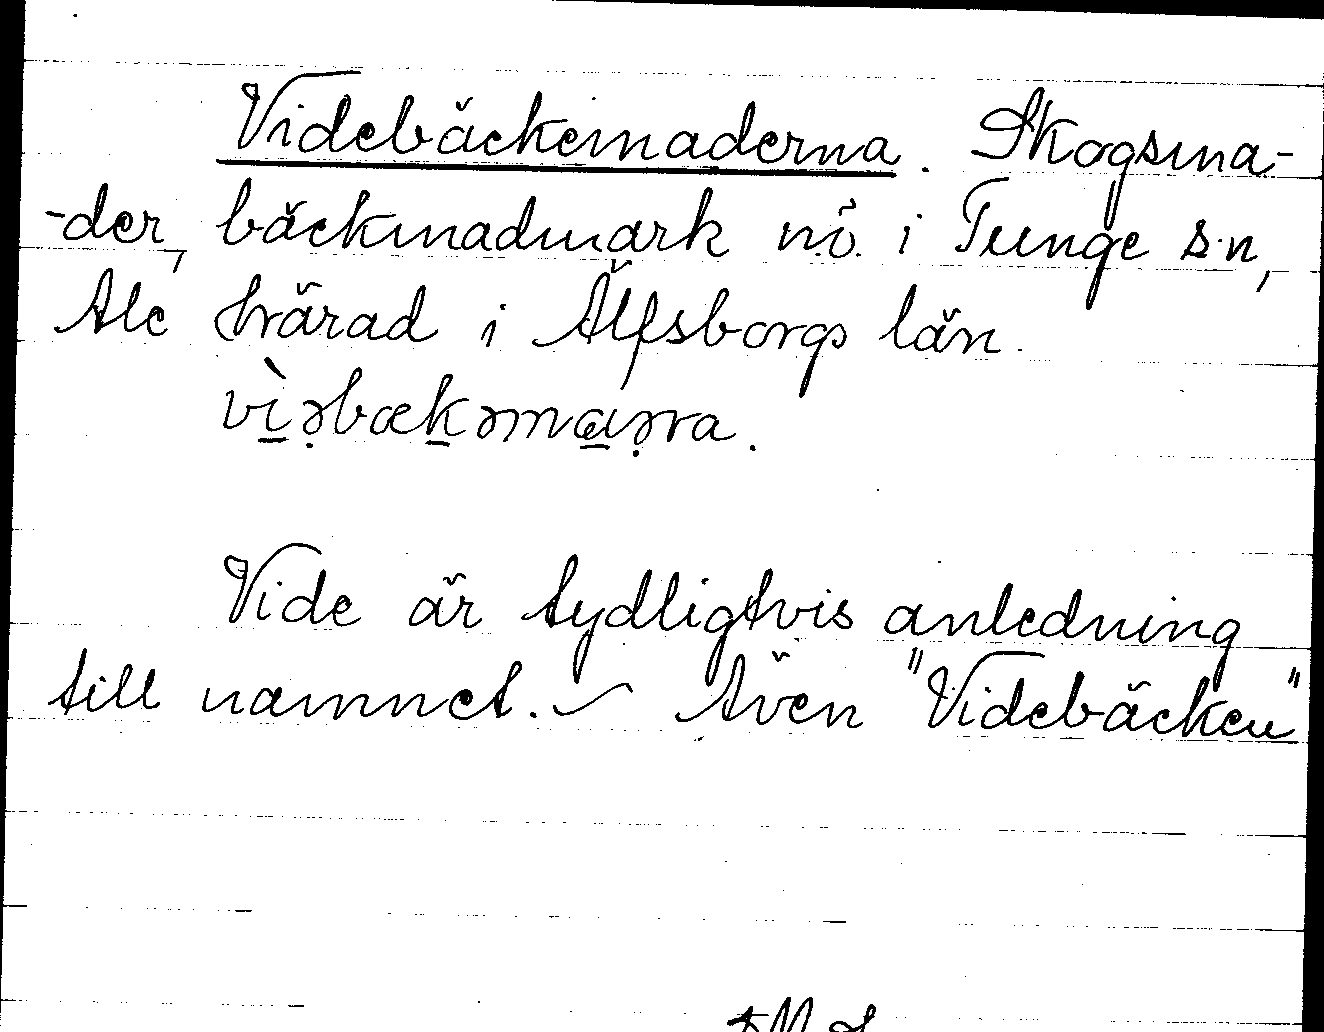 Videbäckemaderna. Skogsma-
-der, bäckmadmark nö. i Tunge s:n,
Ale härad i Älfsborgs län.
vì̱ə̣bæḵəma̱ə̣ra.
Vide är tydligtvis anledning
till namnet. – Även "Videbäcken"